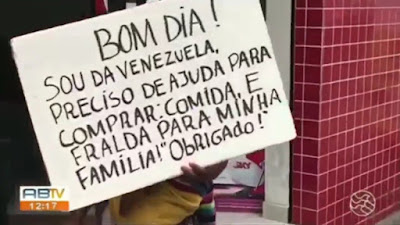 BOM DIA!
SOU DA VENEZUELA,
PRECISO DE AJUDA PARA
COMPRAR: COMIDA, E
FRALDA PARA MINHA
FAMÍLIA! "OBRIGADO!"
ABTV
12:17